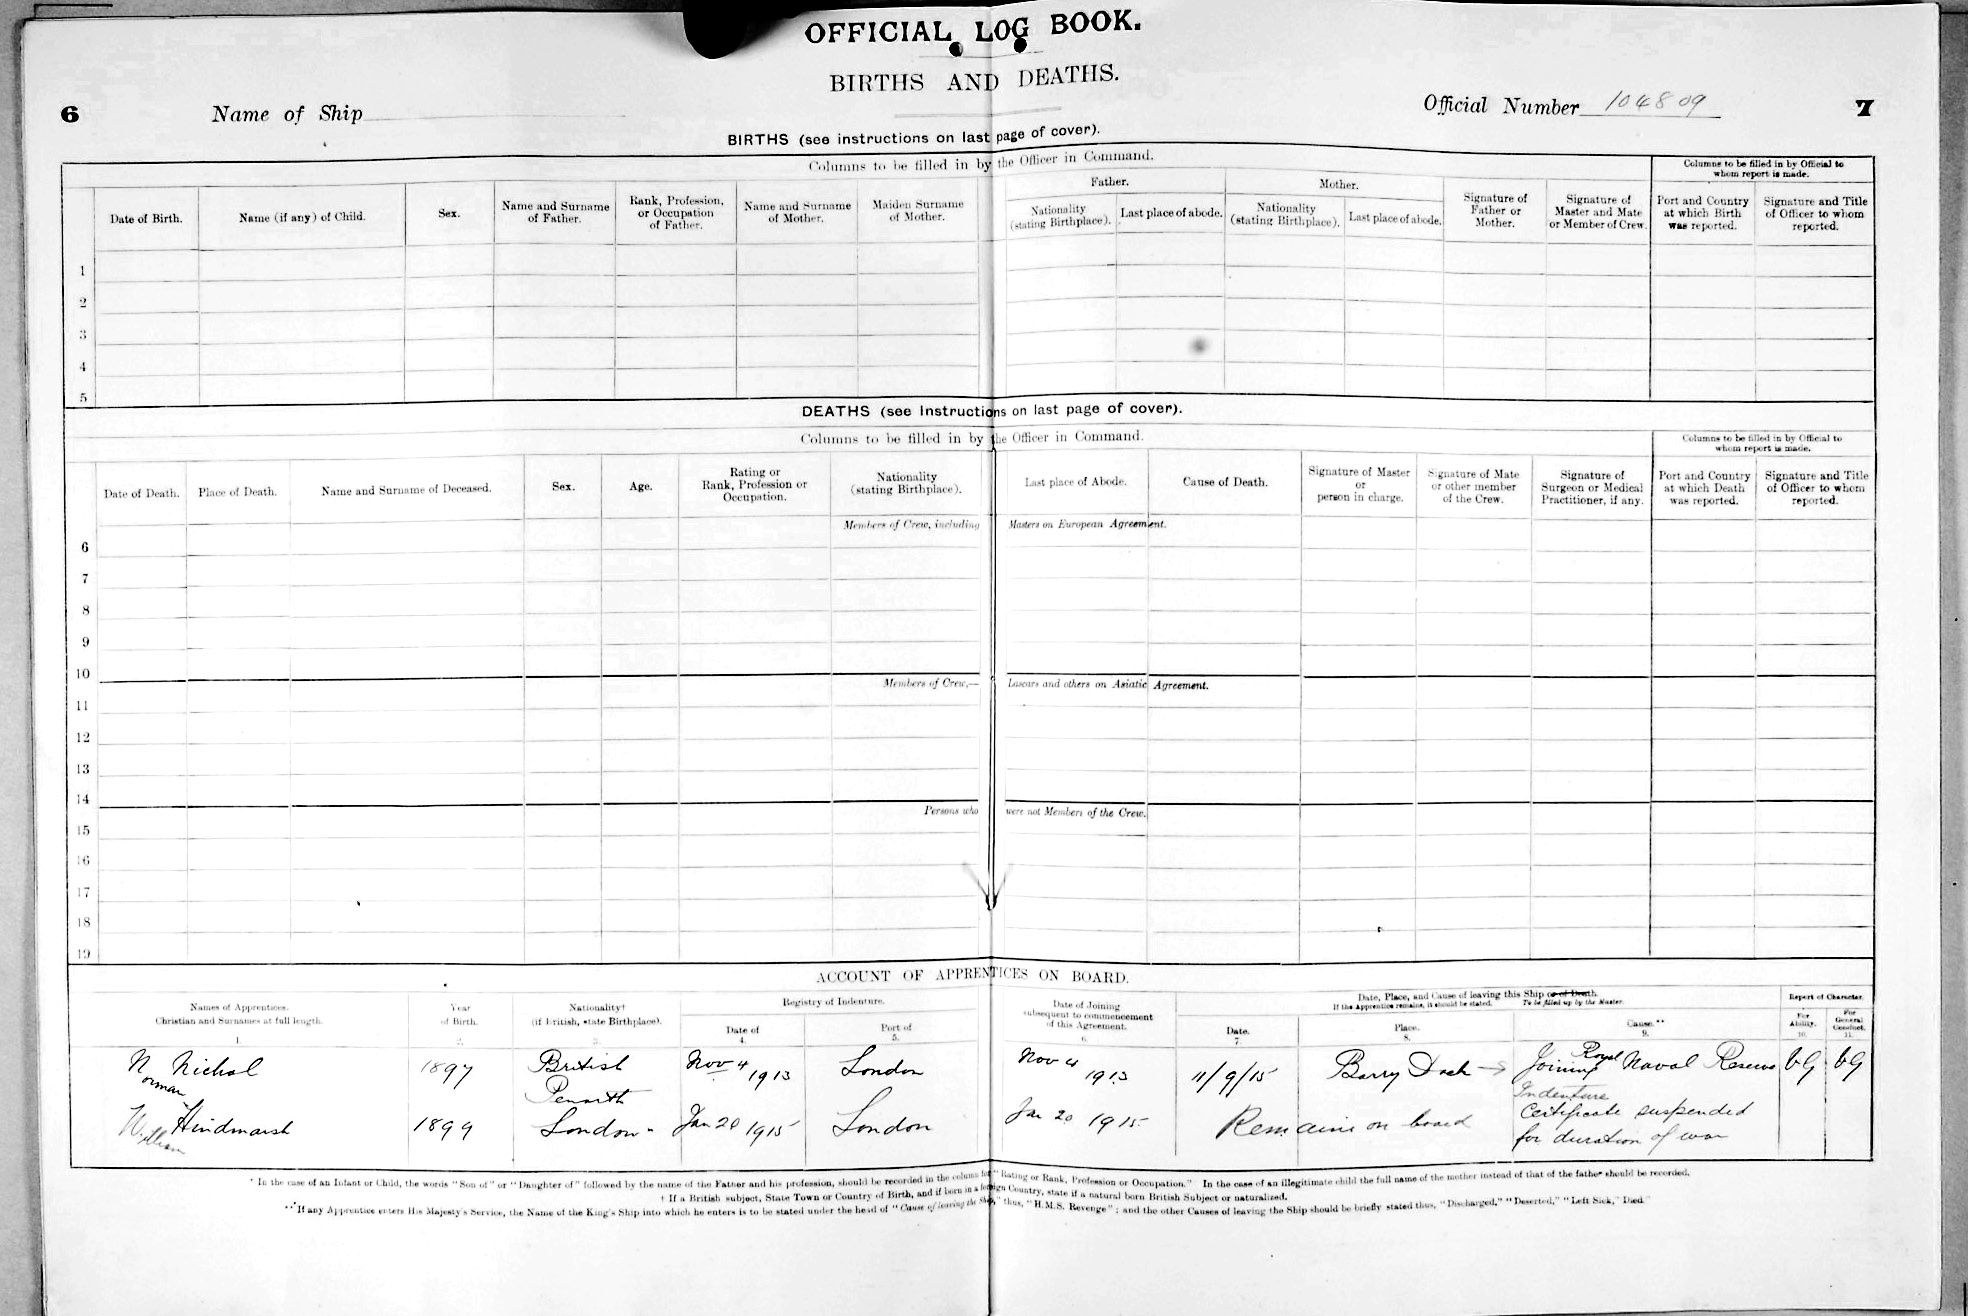 OFFICIAL LOG BOOK.
BIRTHS AND DEATHS.
6
Name of Ship
Official Number 104809
7
BIRTHS (see instructions on last page of cover).
Columns to be filled in by the Officer in Command.
Columns to be filled in by Official to
whom report is made.
Date of Birth.
Name (if any) of Child.
Sex.
Name and Surname
of Father.
Rank, Profession,
or Occupation
of Father.
Name and Surname
of Mother.
Maiden Surname
of Mother.
Father.
Nationality
(stating Birthplace).
Last place of abode.
Mother.
Nationality
(stating Birthplace).
Last place of abode.
Signature of
Father or
Mother.
Signature of
Master and Mate
or Member of Crew.
Port and Country
at which Birth
was reported.
Signature and Title
of Officer to whom
reported.
1
2
3
4
5
DEATHS (see Instructions on last page of cover).
Columns to be filled in by the Officer in Command.
Columns to be filled in by Official to
whom report is made.
Date of Death.
Place of Death.
Name and Surname of Deceased.
Sex.
Age.
Rating or
Rank, Profession or
Occupation.
Nationality
(stating Birthplace).
Last place of Abode.
Cause of Death.
Signature of Master
or
person in charge.
Signature of Mate
or other member
of the Crew.
Signature of
Surgeon or Medical
Practitioner, if any.
Port and Country
at which Death
was reported.
Signature and Title
of Officer to whom
reported.
Members of Crew, including Masters on European Agreement.
6
7
8
9
10
Members of Crew,— Lascars and others on Asiatic Agreement.
11
12
13
14
Persons who were not Members of the Crew.
15
16
17
18
19
ACCOUNT OF APPRENTICES ON BOARD.
Names of Apprentices.
Christian and Surnames at full length.
1.
Year
of Birth.
2.
Nationality†
(if British, state Birthplace).
3.
Registry of Indenture.
Date of
4.
Port of
5.
Date of Joining
subsequent to commencement
of this Agreement.
6.
Date, Place, and Cause of leaving this Ship or of Death.
If the Apprentice remains, it should be stated. To be filled up by the Master.
Date.
7.
Place.
8.
Cause.**
9.
Report of Character.
For
Ability.
10.
For
General
Conduct.
11.
Norman Nichol
1897
British
Penarth
Nov 4 1913
London
Nov 4 1913
11/9/15
Barry Dock
Joining Royal Naval Reserve
VG
VG
William Hindmarsh
1899
London
Jan 20 1915
London
Jan 20 1915
Remains on board
Indenture
Certificate suspended
for duration of war
* In the case of an Infant or Child, the words "Son of" or "Daughter of" followed by the name of the Father and his profession, should be recorded in the column for "Rating or Rank, Profession or Occupation." In the case of an illegitimate child the full name of the mother instead of that of the father should be recorded.
† If a British subject, State Town or Country of Birth, and if born in a foreign Country, state if a natural born British Subject or naturalized.
** If any Apprentice enters His Majesty's Service, the Name of the King's Ship into which he enters is to be stated under the head of "Cause of leaving the Ship," thus, "H.M.S. Revenge"; and the other Causes of leaving the Ship should be briefly stated thus, "Discharged," "Deserted," "Left Sick," Died"